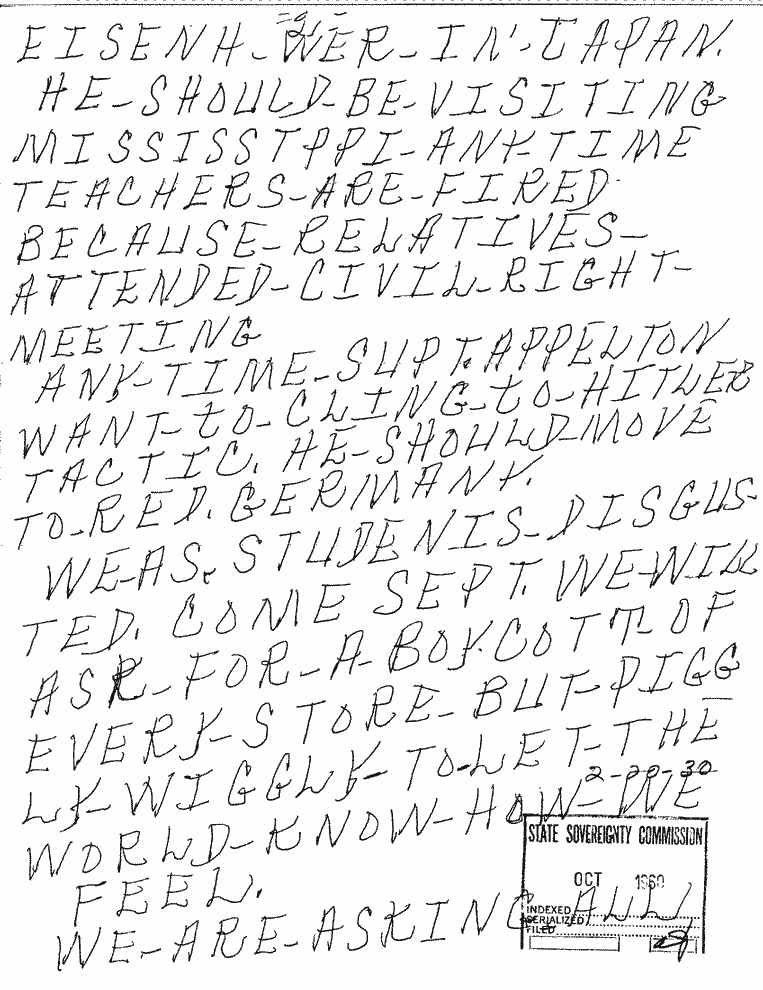 EISENH-WER-IN-JAPAN.
HE-SHOULD-BE-VISITING
MISSISSTPPI-ANY-TIME
TEACHERS-ARE-FIRED
BECAUSE-RELATIVES-
ATTENDED-CIVIL-RIGHT-
MEETING
ANY-TIME-SUPT.APPELTON
WANT-TO-CLING-TO-HITLER
TACTIC. HE-SHOULD-MOVE
TO-RED. GERMANY.
WE-AS. STUDENTS-DISGUS-
TED. COME SEPT. WE-WILL
ASK-FOR-A-BOYCOTT-OF
EVERY-STORE-BUT-PIGG
LY-WIGGLY-TO-LET-THE
2-20-30
WORLD-KNOW-HOW-WE
FEEL.
WE-ARE-ASKING ALL
STATE SOVEREIGNTY COMMISSION
OCT 1960
INDEXED
SERIALIZED
FILED